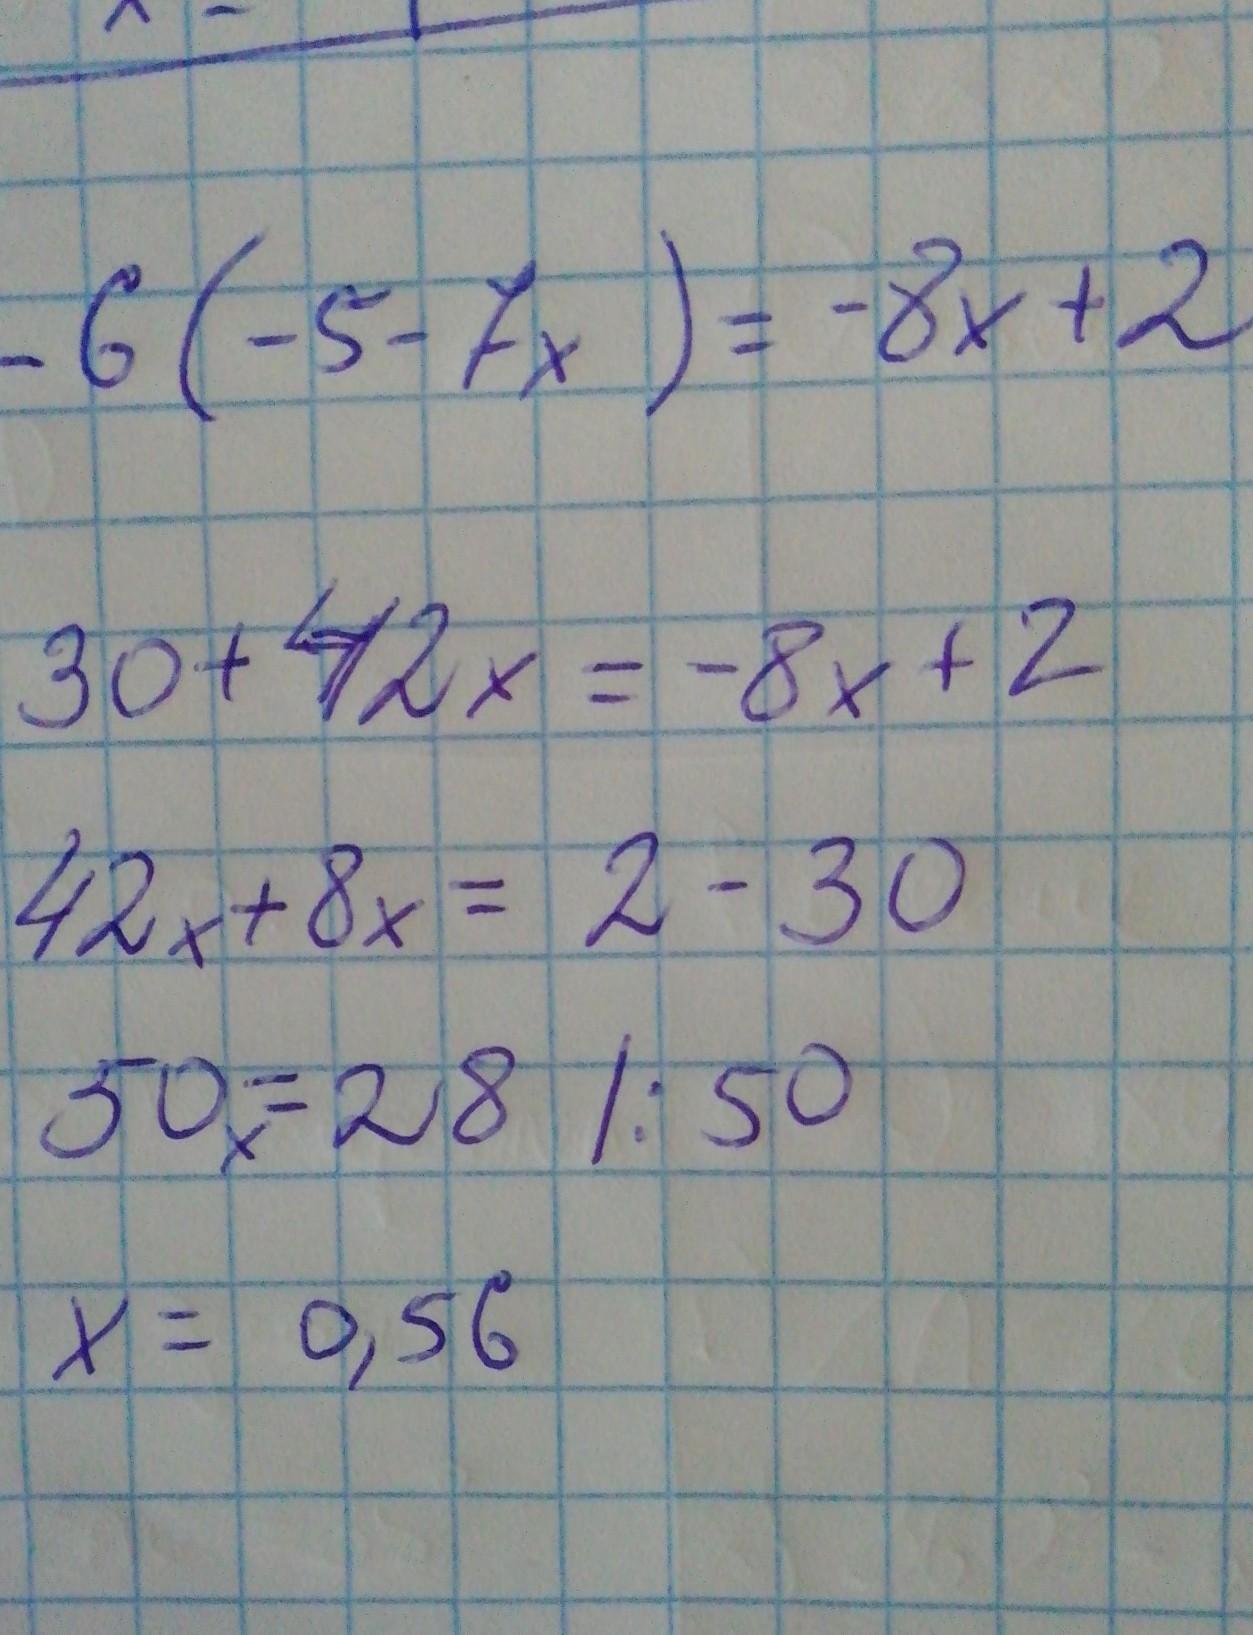 x =
- 6 ( - 5 - 7x ) = - 8x + 2
30 + 42x = - 8x + 2
42x + 8x = 2 - 30
50x = 28 /: 50
x = 0,56